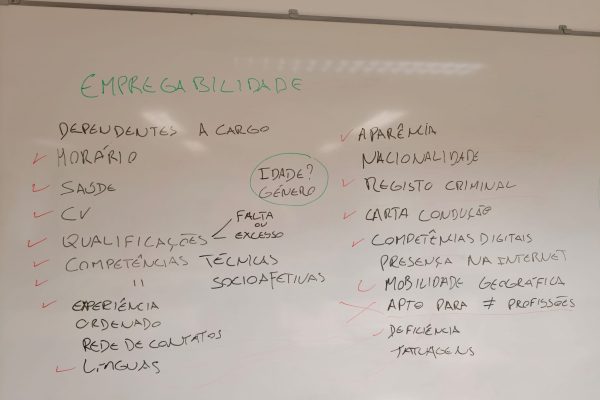 EMPREGABILIDADE
DEPENDENTES A CARGO
HORÁRIO
SAÚDE
CV
QUALIFICAÇÕES < FALTA OU EXCESSO
COMPETÊNCIAS TÉCNICAS
" SOCIOAFETIVAS
EXPERIÊNCIA
ORDENADO
REDE DE CONTATOS
LÍNGUAS
IDADE?
GÉNERO
APARÊNCIA
NACIONALIDADE
REGISTO CRIMINAL
CARTA CONDUÇÃO
COMPETÊNCIAS DIGITAIS
PRESENÇA NA INTERNET
MOBILIDADE GEOGRÁFICA
APTO PARA ≠ PROFISSÕES
DEFICIÊNCIA
TATUAGENS